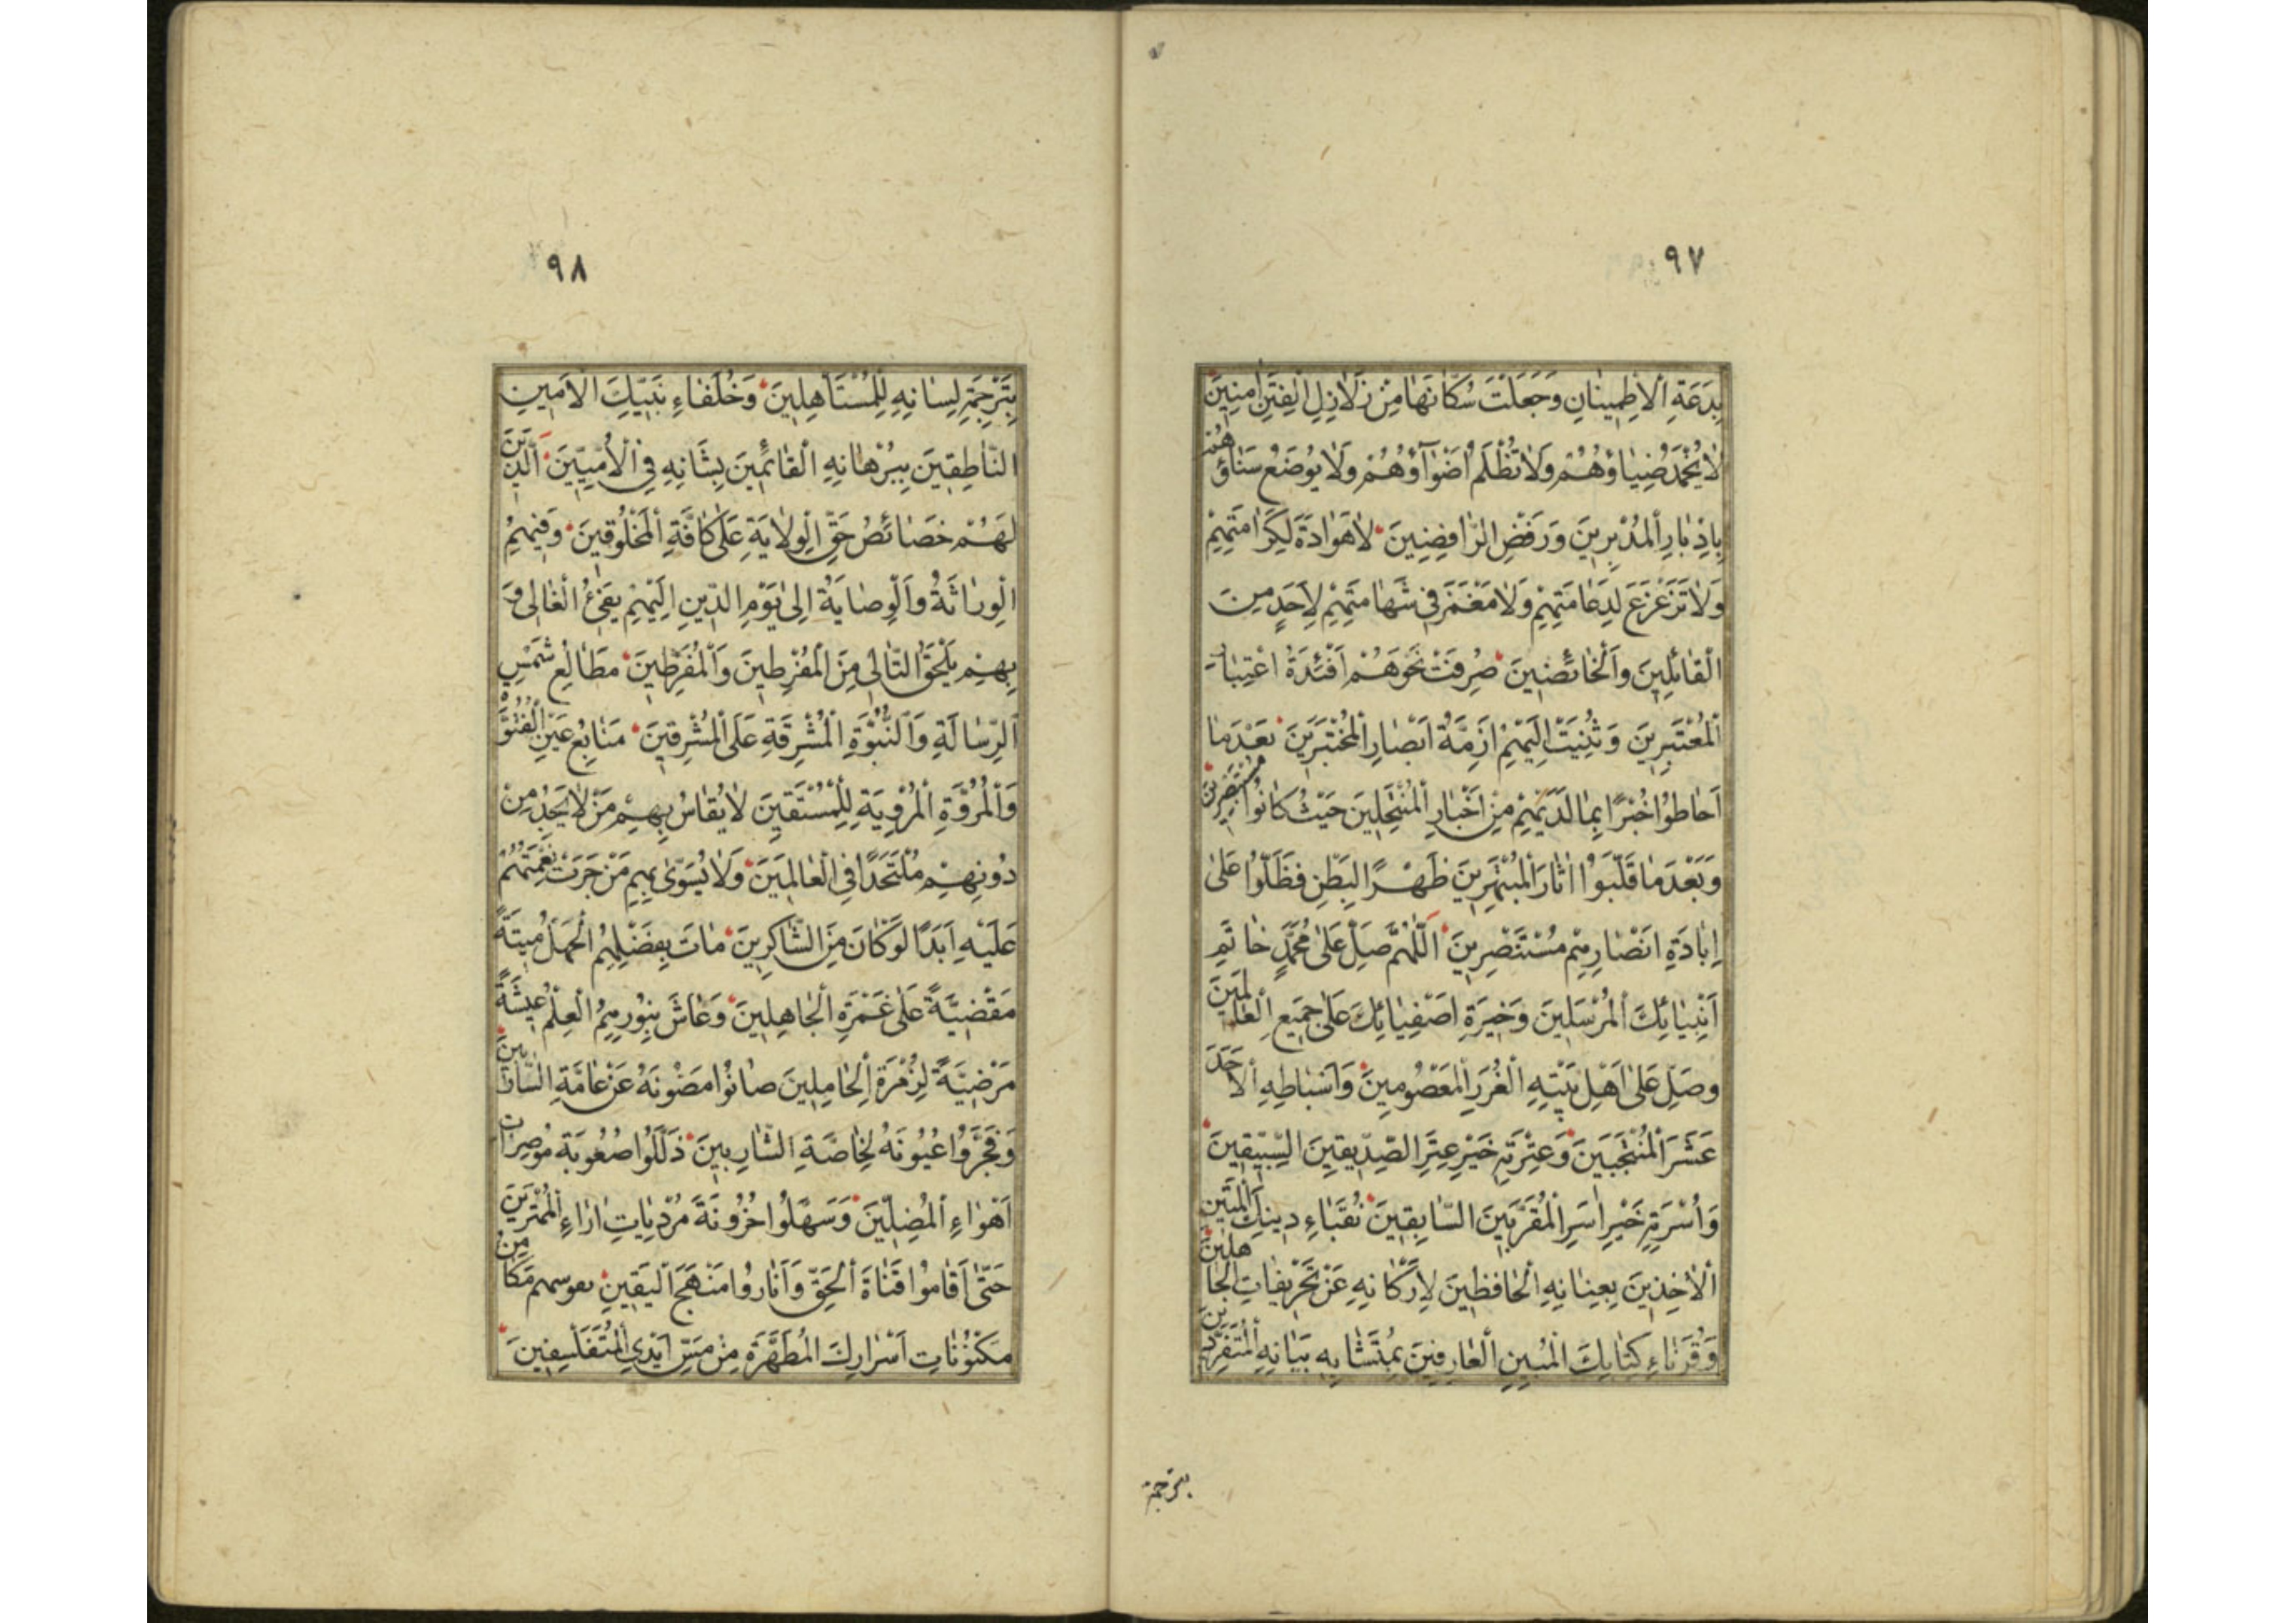 ٩٧
بِدَعَةِ الْاِطْمِينَانِ وَجَعَلْتَ سُكَّانَهَا مِنْ زَلَازِلِ الْفِتَنِ اٰمِنِينَ
لَا يُخْمَدُ ضِيَاؤُهُمْ وَلَا تُظْلَمُ اَضْوَآؤُهُمْ وَلَا يُوضَعُ سَنَاؤُهُمْ
بِاِدْبَارِ الْمُدْبِرِينَ وَرَفْضِ الرَّافِضِينَ لَا هَوَادَةَ لِكَرَامَتِهِمْ
وَلَا تَزَعْزُعَ لِدِعَامَتِهِمْ وَلَا مَغْمَزَ فِي شَهَامَتِهِمْ لِاَحَدٍ مِنَ
الْقَائِلِينَ وَالْخَائِضِينَ صُرِفَتْ نَحْوَهُمْ اَفْئِدَةُ اعْتِبَارِ
الْمُعْتَبِرِينَ وَثُنِيَتْ اِلَيْهِمْ اَزِمَّةُ اَبْصَارِ الْمُخْتَبِرِينَ بَعْدَمَا
اَحَاطُوا خُبْرًا بِمَا لَدَيْهِمْ مِنْ اَخْبَارِ الْمُنْتَحِلِينَ حَيْثُ كَانُوا مُسْتَبْصِرِينَ
وَبَعْدَ مَا قَلَّبُوا اٰثَارَ الْمُبْتَهِرِينَ ظَهْرًا لِبَطْنٍ فَظَلُّوا عَلَى
اِبَادَةِ اَنْصَارِهِمْ مُسْتَنْصِرِينَ اَللّٰهُمَّ صَلِّ عَلٰى مُحَمَّدٍ خَاتَمِ
اَنْبِيَائِكَ الْمُرْسَلِينَ وَخِيَرَةِ اَصْفِيَائِكَ عَلٰى جَمِيعِ الْعَالَمِينَ
وَصَلِّ عَلٰى اَهْلِ بَيْتِهِ الْغُرَرِ الْمَعْصُومِينَ وَاَسْبَاطِهِ الْاَحَدَ
عَشَرَ الْمُنْتَجَبِينَ وَعِتْرَتِهِ خَيْرِ عِتَرِ الصِّدِّيقِينَ السِّبِّيقِينَ
وَاُسْرَتِهِ خَيْرِ اُسَرِ الْمُقَرَّبِينَ السَّابِقِينَ نُقَبَاءِ دِينِكَ الْمَتِينِ
الْاٰخِذِينَ بِعِنَانِهِ الْحَافِظِينَ لِاَرْكَانِهِ عَنْ تَحْرِيفَاتِ الْجَاهِلِينَ
وَقُرَنَاءِ كِتَابِكَ الْمُبِينِ الْعَارِفِينَ بِمُتَشَابِهِ بَيَانِهِ الْمُتَفَرِّدِينَ
بترجمة
٩٨
بِتَرْجَمَةِ لِسَانِهِ لِلْمُسْتَأْهِلِينَ وَخُلَفَاءِ نَبِيِّكَ الْاَمِينِ
النَّاطِقِينَ بِبُرْهَانِهِ الْقَائِمِينَ بِشَانِهِ فِي الْاُمِّيِّينَ اَلَّذِينَ
لَهُمْ خَصَائِصُ حَقِّ الْوِلَايَةِ عَلٰى كَافَّةِ الْمَخْلُوقِينَ وَفِيهِمُ
الْوِرَاثَةُ وَالْوِصَايَةُ اِلٰى يَوْمِ الدِّينِ اِلَيْهِمْ يَفِيءُ الْغَالِي وَ
بِهِمْ يَلْحَقُ التَّالِي مِنَ الْمُفْرِطِينَ وَالْمُفَرِّطِينَ مَطَالِعِ شَمْسِ
الرِّسَالَةِ وَالنُّبُوَّةِ الْمُشْرِقَةِ عَلَى الْمُشْرِقِينَ مَنَابِعِ عَيْنِ الْفُتُوَّةِ
وَالْمُرُوَّةِ الْمُرْوِيَةِ لِلْمُسْتَقِينَ لَا يُقَاسُ بِهِمْ مَنْ لَا يَجِدُ مِنْ
دُونِهِمْ مُلْتَحَدًا فِي الْعَالَمِينَ وَلَا يُسَوّٰى بِهِمْ مَنْ جَرَتْ نِعْمَتُهُمْ
عَلَيْهِ اَبَدًا لَوْ كَانَ مِنَ الشَّاكِرِينَ مَاتَ بِفَضْلِهِمُ الْجَهْلُ مِيتَةً
مَقْضِيَّةً عَلٰى غَمْرَةِ الْجَاهِلِينَ وَعَاشَ بِنُورِهِمُ الْعِلْمُ عِيشَةً
مَرْضِيَّةً لِزُمْرَةِ الْحَامِلِينَ صَانُوا مَضْنُونَهُ عَنْ عَامَّةِ السَّارِبِينَ
وَفَجَّرُوا عُيُونَهُ لِخَاصَّةِ الشَّارِبِينَ ذَلَّلُوا صُعُوبَةَ مُوصِرَاتِ
اَهْوَاءِ الْمُضِلِّينَ وَسَهَّلُوا حُزُونَةَ مُرْدِيَاتِ اٰرَاءِ الْمُمْتَرِينَ
حَتّٰى اَقَامُوا قَنَاةَ الْحَقِّ وَاَنَارُوا مَنْهَجَ الْيَقِينِ مَكَامِنُ
مَكْنُونَاتِ اَسْرَارِكَ الْمُطَهَّرَةِ مِنْ مَسِّ اَيْدِي الْمُتَفَلْسِفِينَ